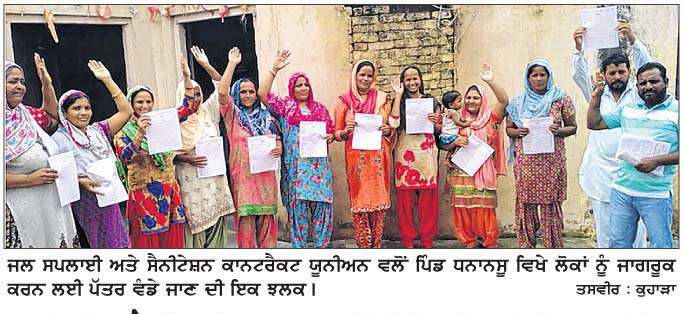 ਜਲ ਸਪਲਾਈ ਅਤੇ ਸੈਨੀਟੇਸ਼ਨ ਕਾਨਟਰੈਕਟ ਯੂਨੀਅਨ ਵਲੋਂ ਪਿੰਡ ਧਨਾਨਸੂ ਵਿਖੇ ਲੋਕਾਂ ਨੂੰ ਜਾਗਰੂਕ
ਕਰਨ ਲਈ ਪੱਤਰ ਵੰਡੇ ਜਾਣ ਦੀ ਇਕ ਝਲਕ। ਤਸਵੀਰ : ਕੁਹਾੜਾ